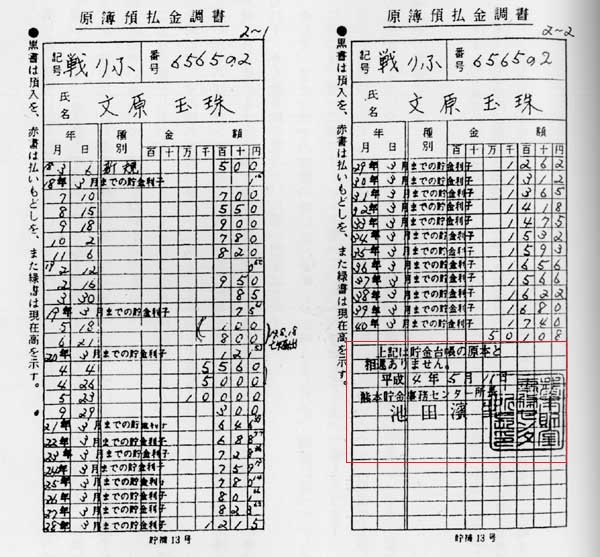 原簿預払金調書
2~1
記号 戦りふ 番号 656592
氏名 文原 玉珠
年月日 種別 金額
百十万千百十円
18 3 6 新規 500
18年3月までの貯金利子
7 10 700
8 15 550
9 18 900
10 2 780
11 6 820
19 2 12
2 16 950
3 30 85
19年3月までの貯金利子 75
5 18 100
6 21 800
20年3月までの貯金利子 121
4 4 5560
4 26 5000
5 23 10000
9 29 300
21年3月までの貯金利子 646
22年3月までの貯金利子 688
23年3月までの貯金利子 728
24年3月までの貯金利子 759
25年3月までの貯金利子 780
26年3月までの貯金利子 801
27年3月までの貯金利子 823
28年3月までの貯金利子 1215
貯補13号
●黒書は預入を、赤書は払いもどしを、また緑書は現在高を示す。
原簿預払金調書
2~2
記号 戦りふ 番号 656592
氏名 文原 玉珠
年月日 種別 金額
百十万千百十円
29年3月までの貯金利子 1262
30年3月までの貯金利子 1312
31年3月までの貯金利子 1365
32年3月までの貯金利子 1418
33年3月までの貯金利子 1475
34年3月までの貯金利子 1532
35年3月までの貯金利子 1593
36年3月までの貯金利子 1656
37年3月までの貯金利子 1566
38年3月までの貯金利子 1622
39年3月までの貯金利子 1680
40年3月までの貯金利子 1740
50108
上記は貯金台帳の原本と
相違ありません。
平成4年5月11日
熊本貯金事務センター所長
池田濱
貯補13号
●黒書は預入を、赤書は払いもどしを、また緑書は現在高を示す。